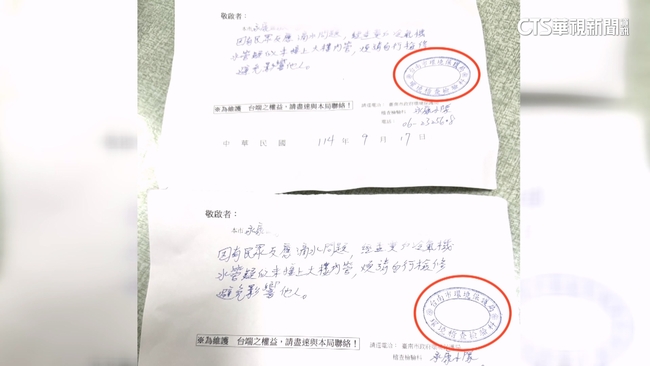 CTS華視新聞
敬啟者：
本市永康
因有民眾反應滴水問題，經查
水管疑似未接上大樓內管，煩請自行檢修
避免影響他人。
台南市環境保護局
環境檢查檢驗科
※為維護　台端之權益，請盡速與本局聯絡！
稽查檢驗科
電話：
中　華　民　國　114　年　9　月　17　日
敬啟者：
本市永康
因有民眾反應滴水問題，經查貴戶冷氣機
水管疑似未接上大樓內管，煩請自行檢修
避免影響他人。
台南市環境保護局
※為維護　台端之權益，請盡速與本局聯絡！
稽查檢驗科